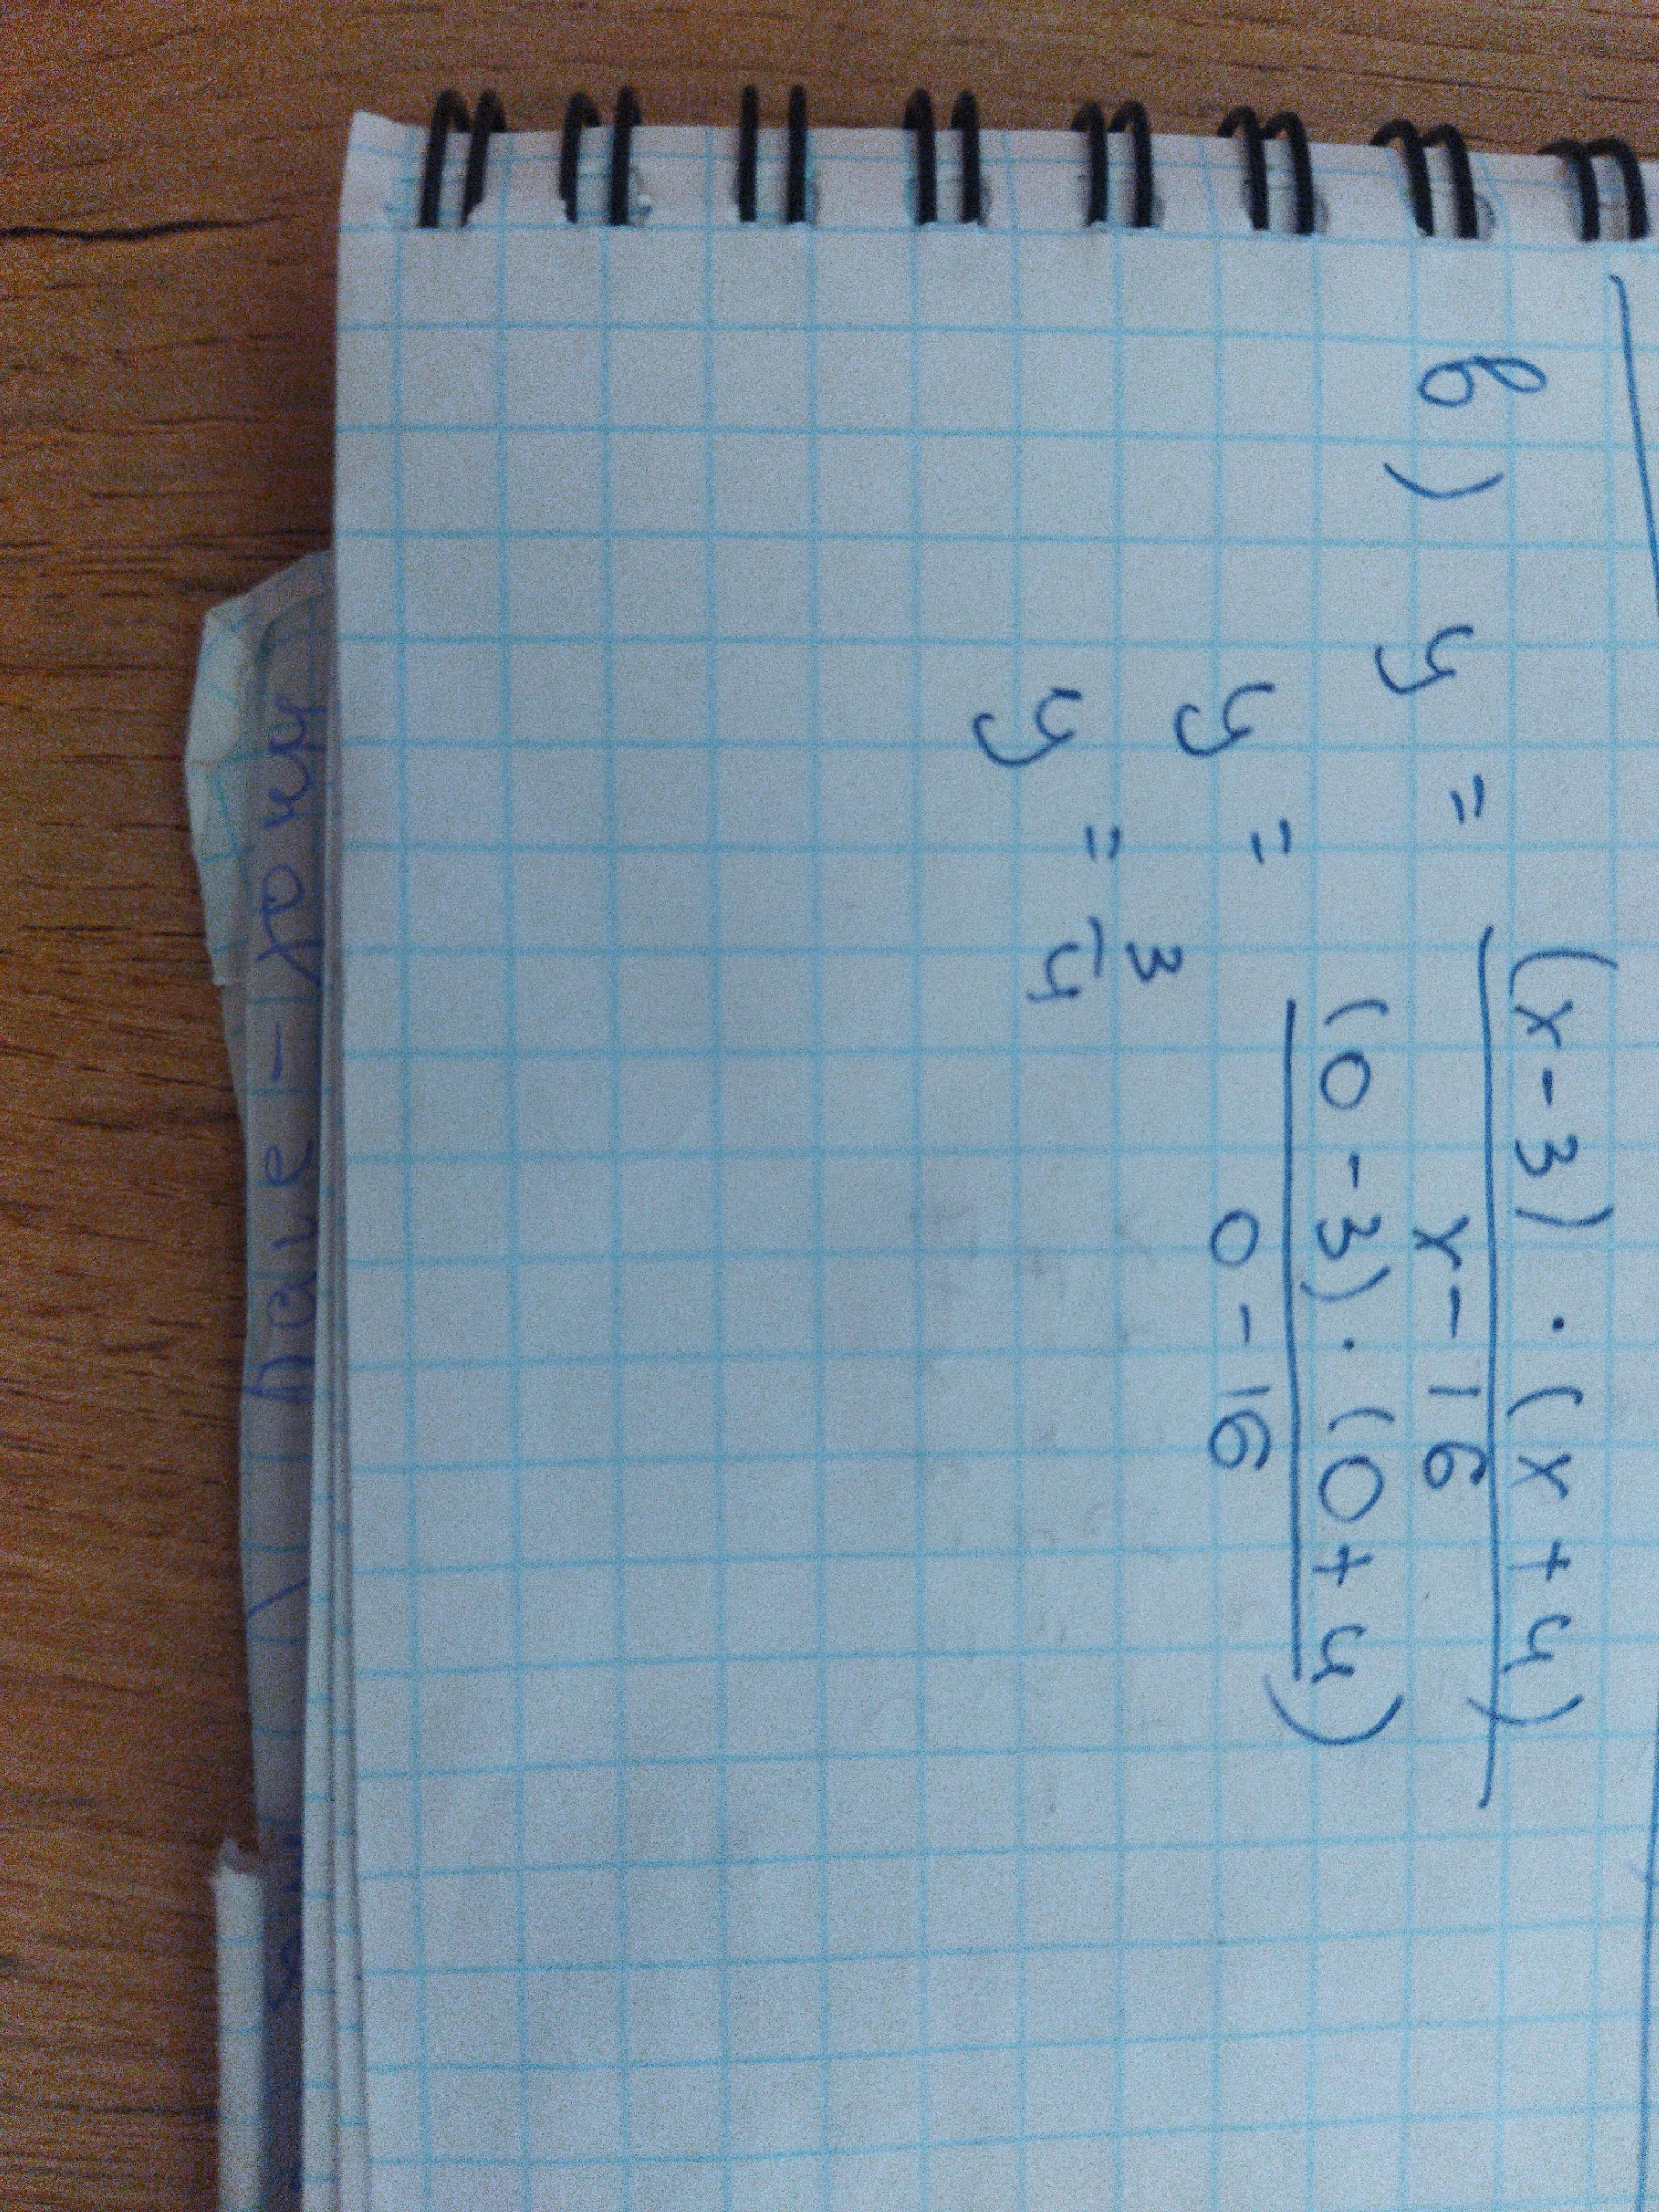 в) y = (x-3)·(x+4)
x-16
y = (0-3)·(0+4)
0-16
y = 3/4